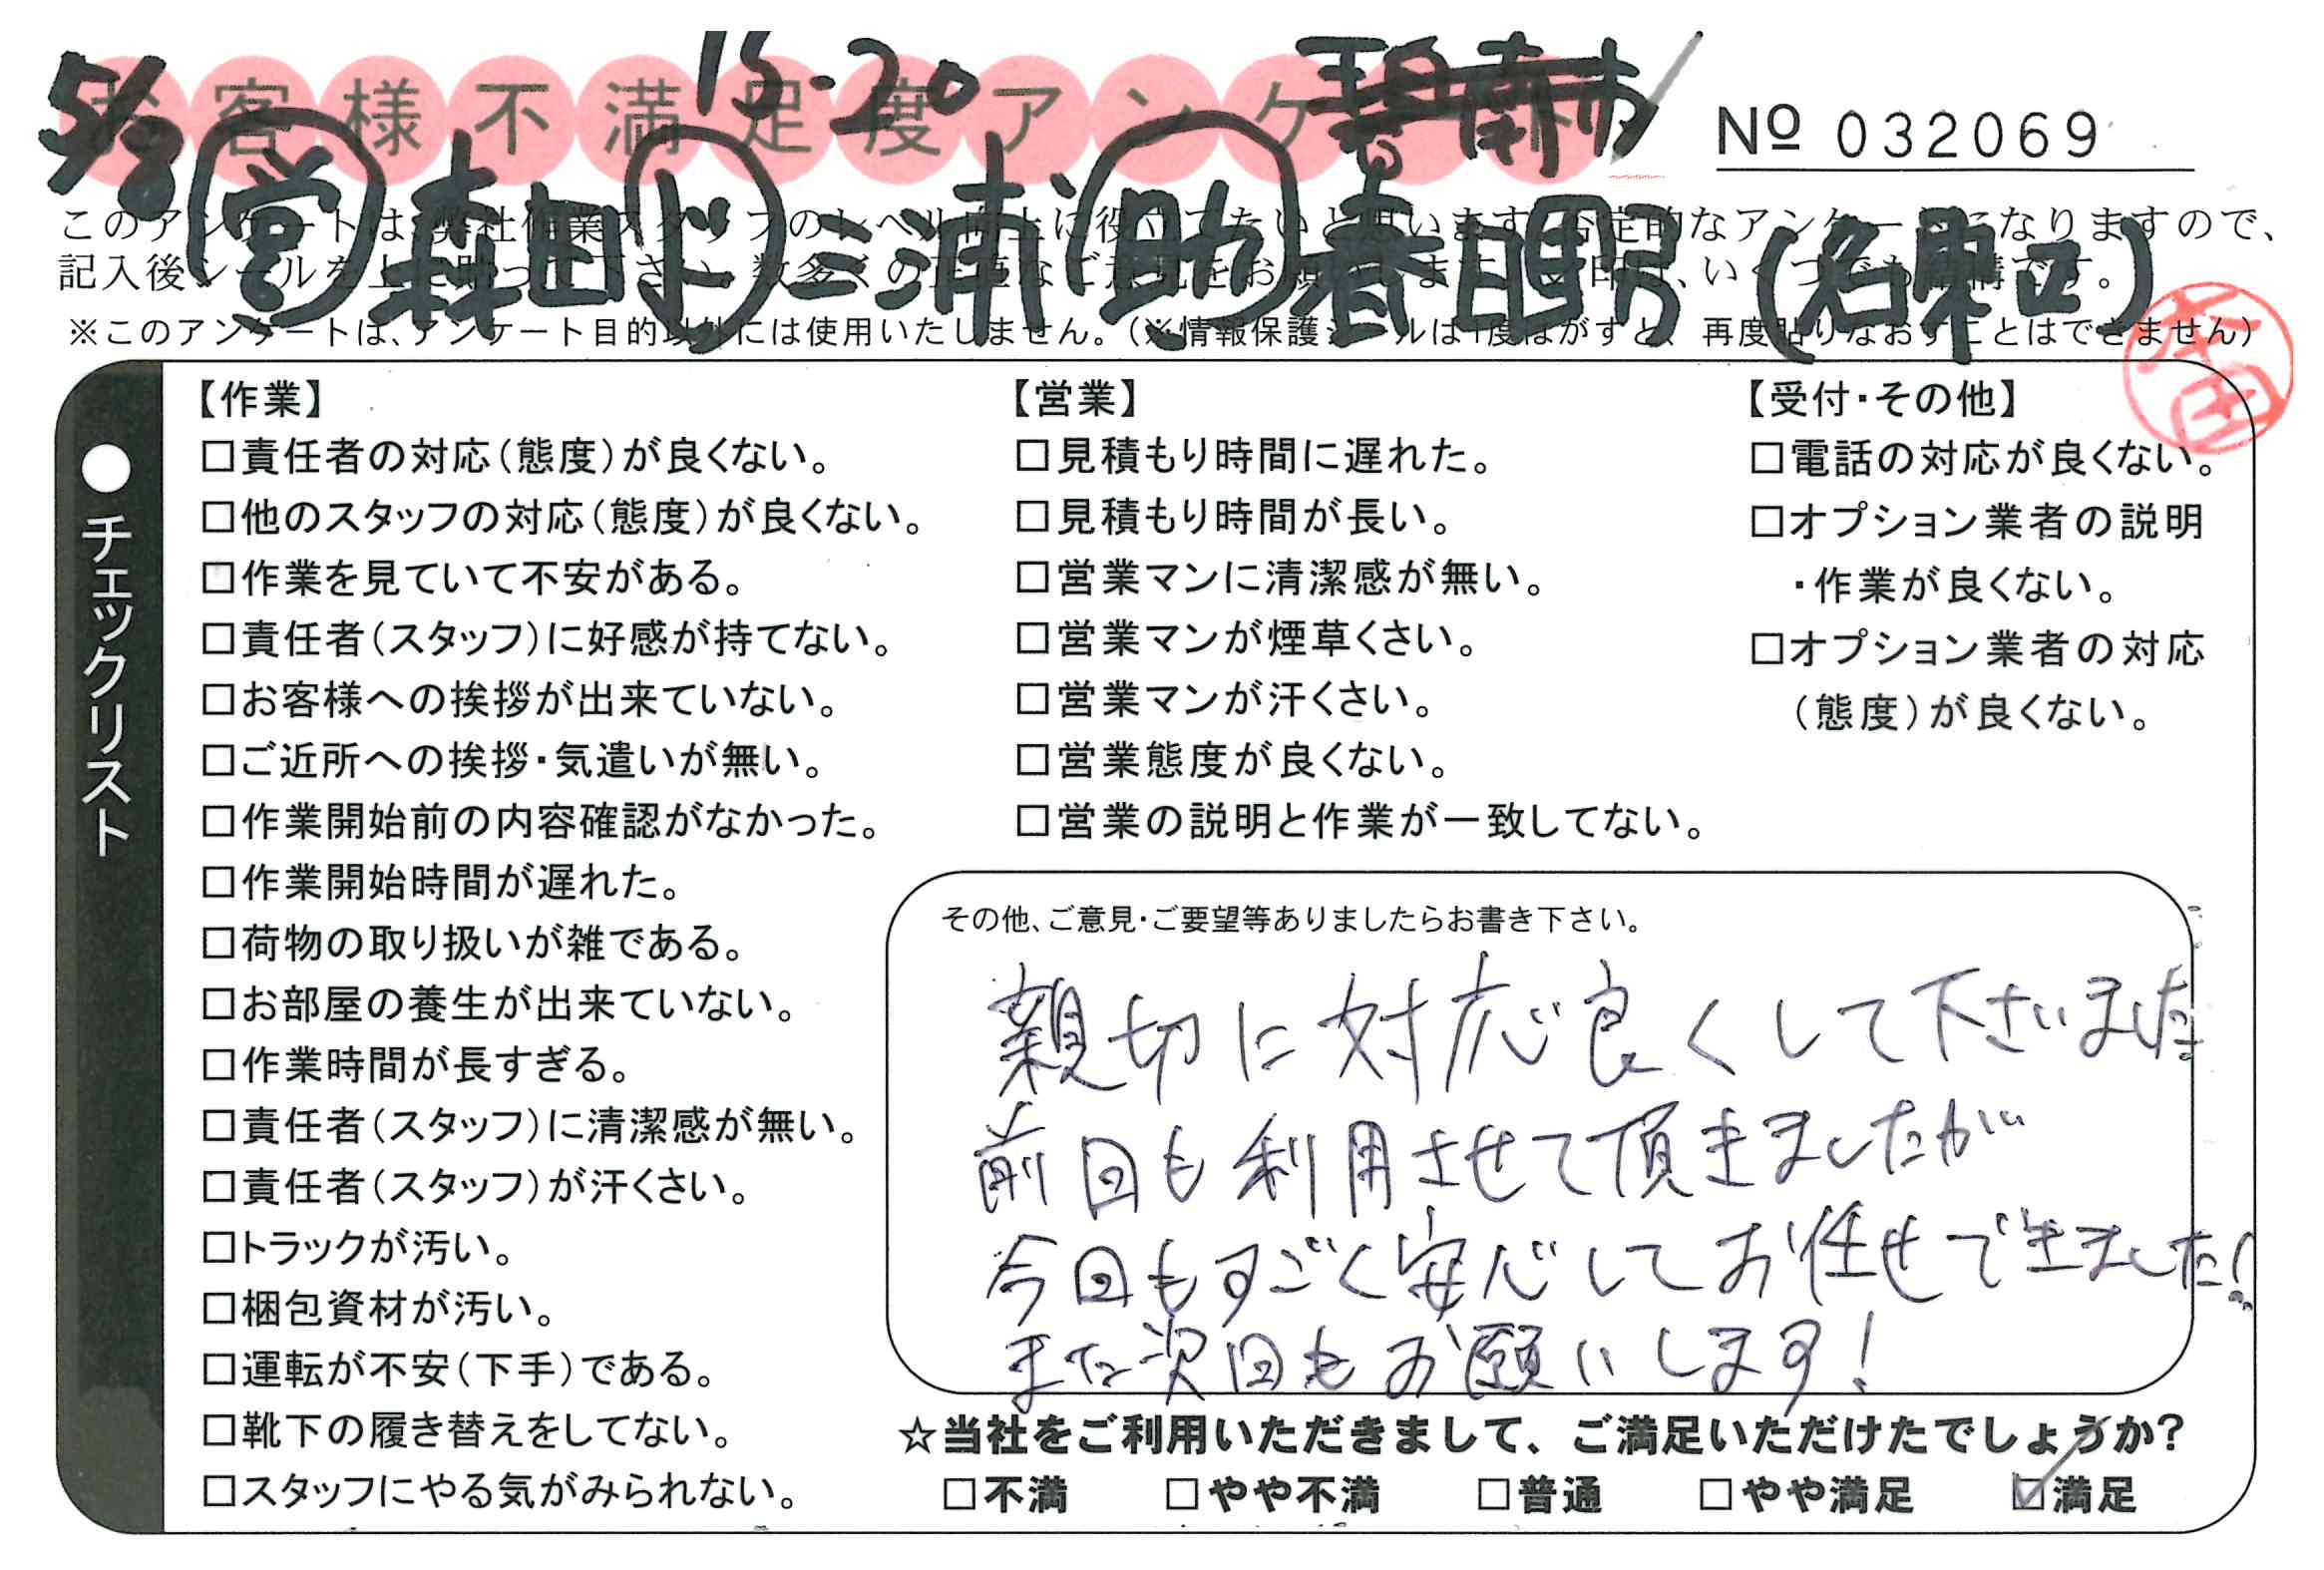 5/8 15-20 碧南市
お客様不満足度アンケート
№ 032069
営 森田 ド 三浦 助 春日 男 (名東区)
このアンケートは、弊社作業スタッフのレベル向上に役立てたいと思います。否定的なアンケートになりますので、
記入後シールを上に貼って下さい。数多くの正直なご意見をお願いします。レ印は、いくつでも結構です。
※このアンケートは、アンケート目的以外には使用いたしません。(※情報保護シールは1度はがすと、再度貼りなおすことはできません)
本田
●チェックリスト
【作業】
□責任者の対応(態度)が良くない。
□他のスタッフの対応(態度)が良くない。
□作業を見ていて不安がある。
□責任者(スタッフ)に好感が持てない。
□お客様への挨拶が出来ていない。
□ご近所への挨拶・気遣いが無い。
□作業開始前の内容確認がなかった。
□作業開始時間が遅れた。
□荷物の取り扱いが雑である。
□お部屋の養生が出来ていない。
□作業時間が長すぎる。
□責任者(スタッフ)に清潔感が無い。
□責任者(スタッフ)が汗くさい。
□トラックが汚い。
□梱包資材が汚い。
□運転が不安(下手)である。
□靴下の履き替えをしてない。
□スタッフにやる気がみられない。
【営業】
□見積もり時間に遅れた。
□見積もり時間が長い。
□営業マンに清潔感が無い。
□営業マンが煙草くさい。
□営業マンが汗くさい。
□営業態度が良くない。
□営業の説明と作業が一致してない。
【受付・その他】
□電話の対応が良くない。
□オプション業者の説明
・作業が良くない。
□オプション業者の対応
(態度)が良くない。
その他、ご意見・ご要望等ありましたらお書き下さい。
親切に対応良くして下さいました
前回も利用させて頂きましたが
今回もすごく安心してお任せできました!
また次回もお願いします!
☆当社をご利用いただきまして、ご満足いただけたでしょうか?
□不満 □やや不満 □普通 □やや満足 ☑満足